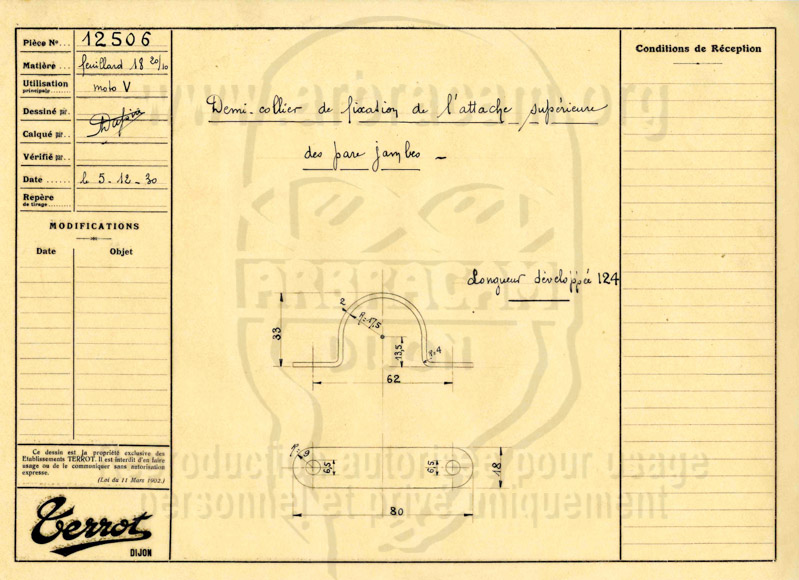 Pièce N°... 12506
Matière... feuillard 18 20/10
Utilisation principale moto V
Dessiné par
Calqué par
Vérifié par
Date ...... le 5-12-30
Repère de tirage
MODIFICATIONS
Date Objet
Ce dessin est la propriété exclusive des
Etablissements TERROT. Il est interdit d'en faire
usage ou de le communiquer sans autorisation
expresse.
(Loi du 11 Mars 1902.)
Terrot
DIJON
www.arbracam.org
Demi-collier de fixation de l'attache supérieure
des pare jambes –
Longueur développée 124
ARBRACAM
DIJON
33
2
R=17,5
13,5
R=4
62
R=9
6,5
6,5
18
80
Reproduction autorisée pour usage
personnel et privé uniquement
Conditions de Réception